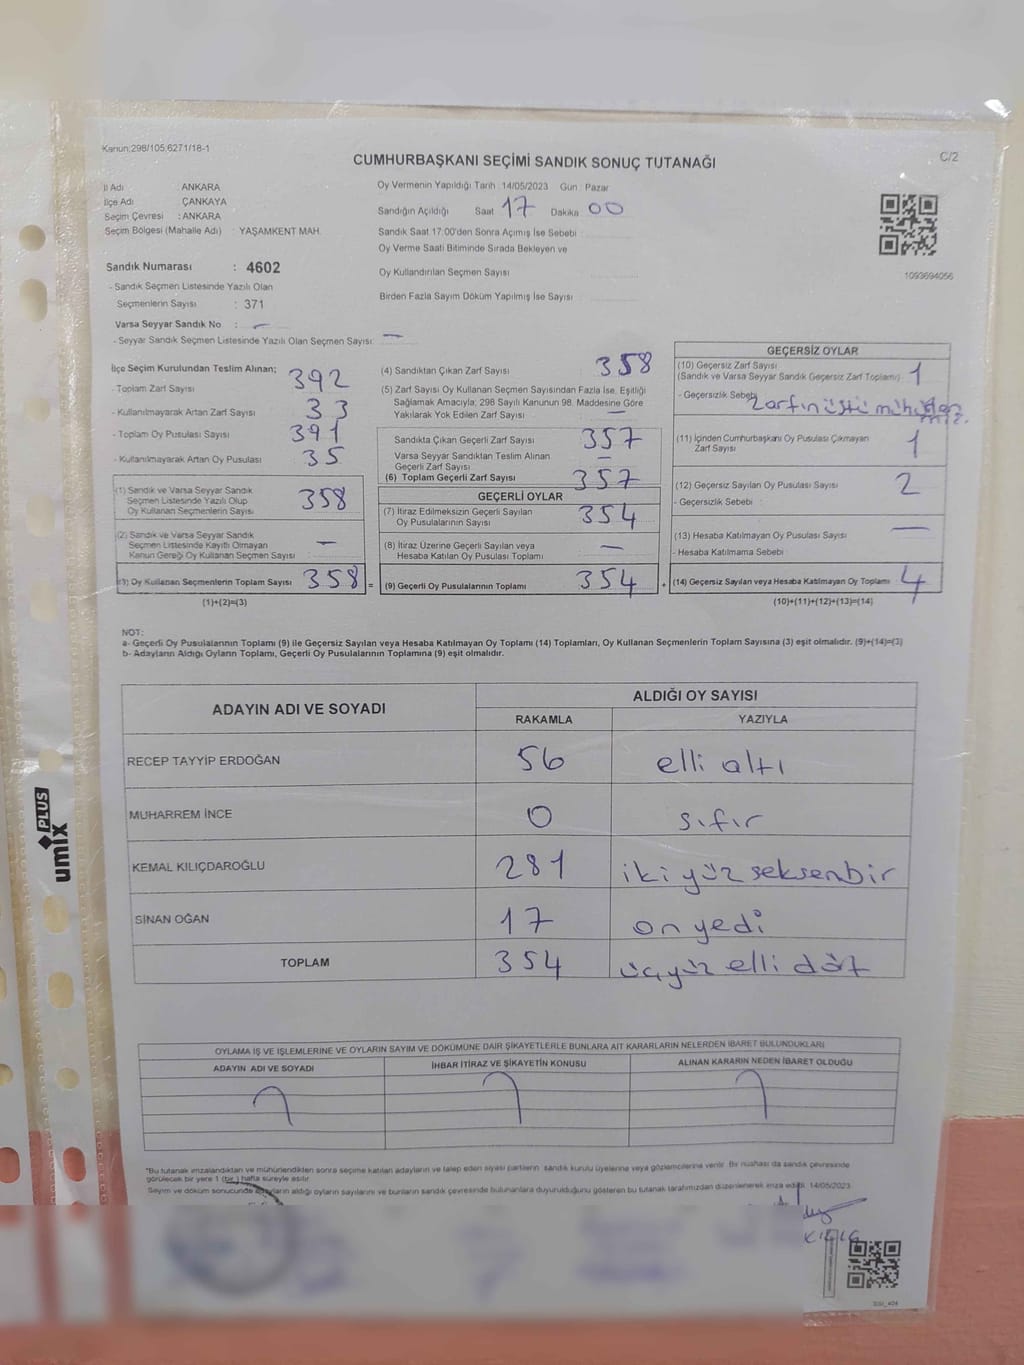 Kanun:298/105,6271/18-1
C/2
CUMHURBAŞKANI SEÇİMİ SANDIK SONUÇ TUTANAĞI
İl Adı ANKARA
İlçe Adı ÇANKAYA
Seçim Çevresi : ANKARA
Seçim Bölgesi (Mahalle Adı) : YAŞAMKENT MAH.
Oy Vermenin Yapıldığı Tarih : 14/05/2023 Gün : Pazar
Sandığın Açıldığı Saat 17 Dakika 00
Sandık Saat 17:00'den Sonra Açımış İse Sebebi :
Oy Verme Saati Bitiminde Sırada Bekleyen ve
Oy Kullandırılan Seçmen Sayısı
Birden Fazla Sayım Döküm Yapılmış İse Sayısı :
1093694056
Sandık Numarası : 4602
- Sandık Seçmen Listesinde Yazılı Olan
Seçmenlerin Sayısı : 371
Varsa Seyyar Sandık No : —
- Seyyar Sandık Seçmen Listesinde Yazılı Olan Seçmen Sayısı: —
İlçe Seçim Kurulundan Teslim Alınan;
- Toplam Zarf Sayısı 392
- Kullanılmayarak Artan Zarf Sayısı : 33
- Toplam Oy Pusulası Sayısı : 391
- Kullanılmayarak Artan Oy Pusulası : 35
(1) Sandık ve Varsa Seyyar Sandık
Seçmen Listesinde Yazılı Olup
Oy Kullanan Seçmenlerin Sayısı : 358
(2) Sandık ve Varsa Seyyar Sandık
Seçmen Listesinde Kayıtlı Olmayan
Kanun Gereği Oy Kullanan Seçmen Sayısı : —
(3) Oy Kullanan Seçmenlerin Toplam Sayısı : 358 =
(1)+(2)=(3)
(4) Sandıktan Çıkan Zarf Sayısı : 358
(5) Zarf Sayısı Oy Kullanan Seçmen Sayısından Fazla İse, Eşitliği
Sağlamak Amacıyla; 298 Sayılı Kanunun 98. Maddesine Göre
Yakılarak Yok Edilen Zarf Sayısı : —
Sandıkta Çıkan Geçerli Zarf Sayısı : 357
Varsa Seyyar Sandıktan Teslim Alınan
Geçerli Zarf Sayısı : —
(6) Toplam Geçerli Zarf Sayısı : 357
GEÇERLİ OYLAR
(7) İtiraz Edilmeksizin Geçerli Sayılan
Oy Pusulalarının Sayısı : 354
(8) İtiraz Üzerine Geçerli Sayılan veya
Hesaba Katılan Oy Pusulası Toplamı : —
(9) Geçerli Oy Pusulalarının Toplamı : 354 +
GEÇERSİZ OYLAR
(10) Geçersiz Zarf Sayısı
(Sandık ve Varsa Seyyar Sandık Geçersiz Zarf Toplamı) : 1
- Geçersizlik Sebebi
(11) İçinden Cumhurbaşkanı Oy Pusulası Çıkmayan
Zarf Sayısı : 1
(12) Geçersiz Sayılan Oy Pusulası Sayısı : 2
- Geçersizlik Sebebi :
(13) Hesaba Katılmayan Oy Pusulası Sayısı : —
- Hesaba Katılmama Sebebi :
(14) Geçersiz Sayılan veya Hesaba Katılmayan Oy Toplamı : 4
(10)+(11)+(12)+(13)=(14)
NOT:
a- Geçerli Oy Pusulalarının Toplamı (9) ile Geçersiz Sayılan veya Hesaba Katılmayan Oy Toplamı (14) Toplamları, Oy Kullanan Seçmenlerin Toplam Sayısına (3) eşit olmalıdır. (9)+(14)=(3)
b- Adayların Aldığı Oyların Toplamı, Geçerli Oy Pusulalarının Toplamına (9) eşit olmalıdır.
ADAYIN ADI VE SOYADI
ALDIĞI OY SAYISI
RAKAMLA YAZIYLA
RECEP TAYYİP ERDOĞAN 56 elli altı
MUHARREM İNCE 0 sıfır
KEMAL KILIÇDAROĞLU 281 iki yüz seksenbir
SİNAN OĞAN 17 on yedi
TOPLAM 354 üçyüz elli döt
PLUS
umix
OYLAMA İŞ VE İŞLEMLERİNE VE OYLARIN SAYIM VE DÖKÜMÜNE DAİR ŞİKAYETLERLE BUNLARA AİT KARARLARIN NELERDEN İBARET BULUNDUKLARI
ADAYIN ADI VE SOYADI İHBAR İTİRAZ VE ŞİKAYETİN KONUSU ALINAN KARARIN NEDEN İBARET OLDUĞU
*Bu tutanak imzalandıktan ve mühürlendikten sonra seçime katılan adayların ve talep eden siyasi partilerin sandık kurulu üyelerine veya gözlemcilerine verilir. Bir nüshası da sandık çevresinde
görülecek bir yere 1 (bir) hafta süreyle asılır.
Sayım ve döküm sonucunda adayların aldığı oyların sayılarını ve bunların sandık çevresinde bulunanlara duyurulduğunu gösteren bu tutanak tarafımızdan düzenlenerek imza edildi. 14/05/2023